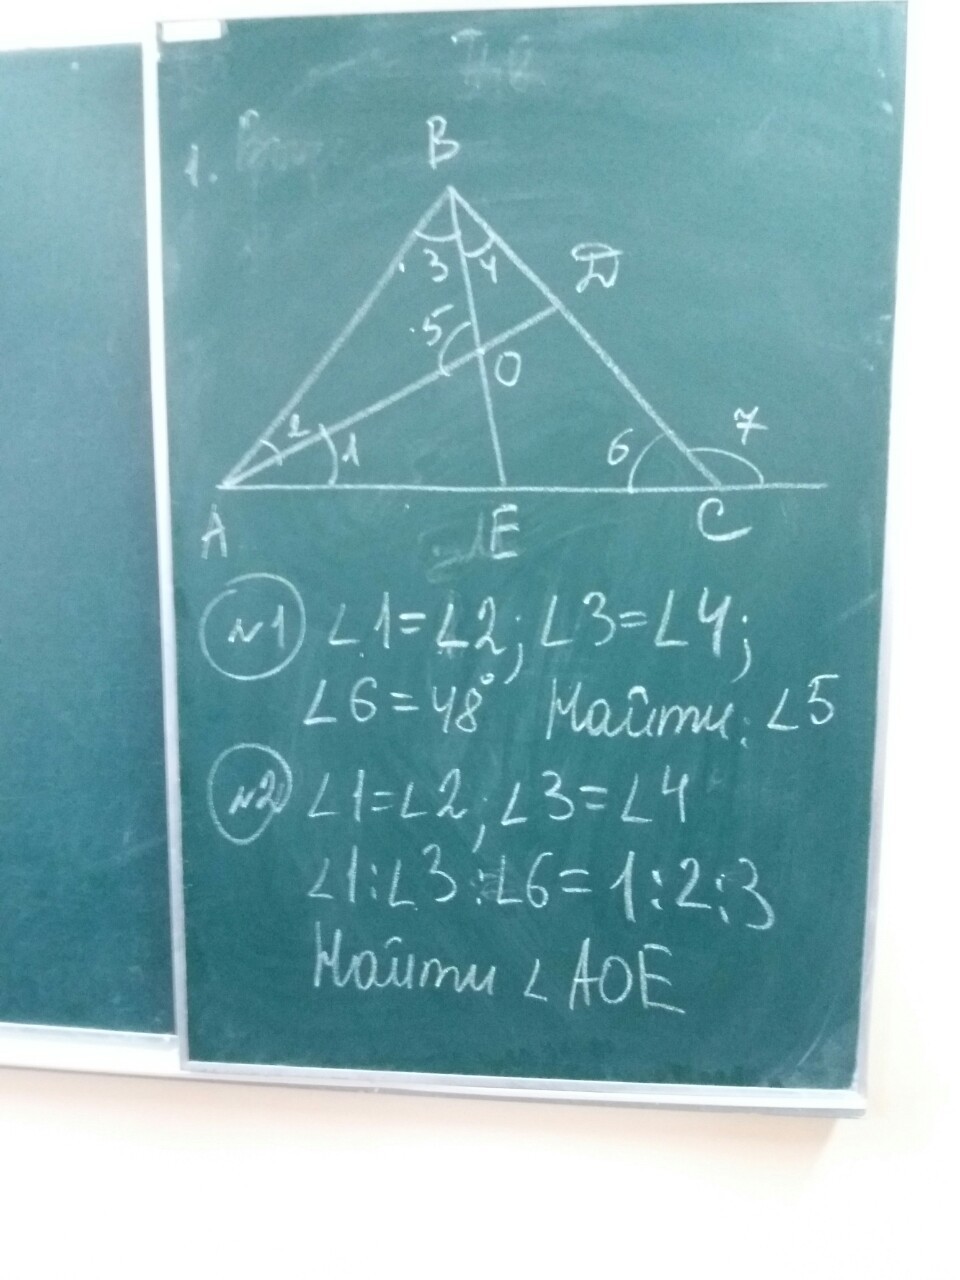 1.
B
3 4
D
5
O
2
1
6
7
A
E
C
№1 ∠1=∠2; ∠3=∠4;
∠6=48° Найти: ∠5
№2 ∠1=∠2, ∠3=∠4
∠1:∠3:∠6=1:2:3
Найти ∠AOE